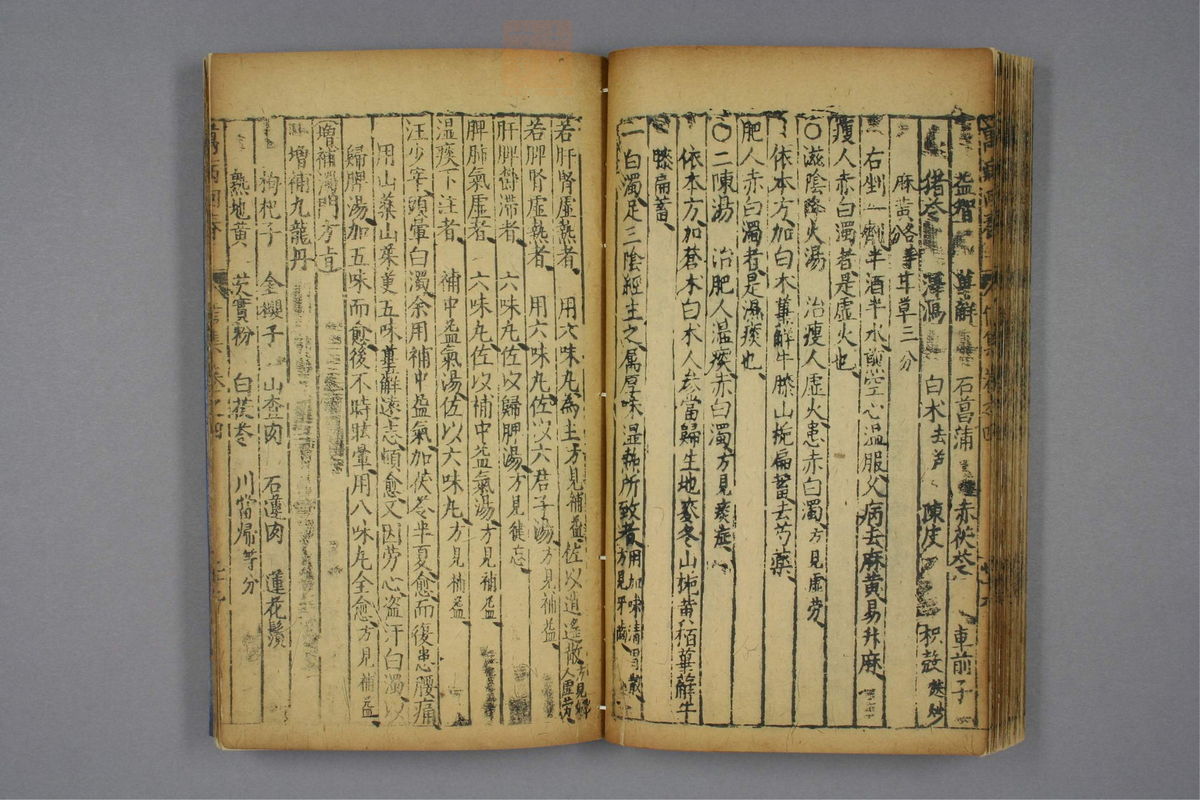 益智 萆薢 石菖蒲 赤茯苓 車前子
猪苓 澤瀉 白术去芦 陳皮 枳殼麸炒
麻黃各 甘草三分
右剉一劑半酒半水煎空心溫服久病去麻黃易升麻
瘦人赤白濁者是虛火也
〇滋陰降火湯 治瘦人虛火患赤白濁方見虛勞
依本方加白术萆薢牛膝山梔萹蓄去芍藥
肥人赤白濁者是濕痰也
〇二陳湯 治肥人濕痰赤白濁方見痰症
依本方加蒼术白术人參當歸生地麥冬山梔黃栢萆薢牛
膝扁蓄
一白濁足三陰經主之屬厚味濕熱所致者用加味清胃散方見牙齒
若肝腎虛熱者 用六味丸為主方見補益佐以逍遙散
若脾腎虛熱者 用六味丸佐以六君子湯方見補益
肝脾鬱滯者 六味丸佐以歸脾湯方見健忘
脾肺氣虛者 六味丸佐以補中益氣湯方見補益
濕痰下注者 補中益氣湯佐以六味丸方見補益
汪少宰頭暈白濁余用補中益氣加茯苓半夏愈而復患腰痛
用山藥山茱萸五味萆薢遠志頓愈又因勞心盜汗白濁以
歸脾湯加五味而愈後不時眩暈用八味丸全愈方見補益
增補濁門方
增補九龍丹
枸杞子 金櫻子 山查肉 石蓮肉 蓮花鬚
熟地黃 芡實粉 白茯苓 川當歸等分